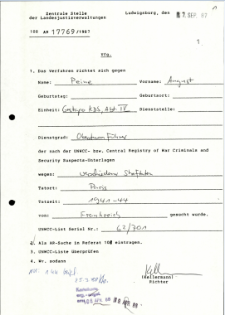 Zentrale Stelle
der Landesjustizverwaltungen
Ludwigsburg, den
AR 17769/1987
Vfg.
1. Das Verfahren richtet sich gegen
Name: Peine Vorname: August
Geburtstag: Geburtsort:
Einheit: Gestapo KdS, Abt IV Dienststelle:
Dienstgrad:
der nach der UNWCC- bzw. Central Registry of War Criminals and
Security Suspects-Unterlagen
wegen: verschiedener Straftaten
Tatort: Paris
Tatzeit: 1941-44
von: Frankreich gesucht wurde.
UNWCC-List Serial Nr.:
2. Als AR-Sache in Referat eintragen.
3. UNWCC-Liste überprüfen
4. Wv. sodann
Richter